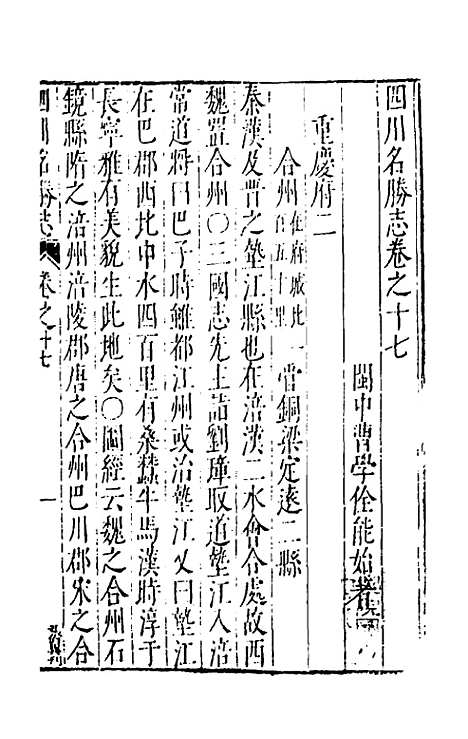 四川名勝志卷之十七
閩中曹學佺能始著
重慶府二
合州在府城北一百五十里 管銅梁定遠二縣
秦漢及晋之墊江縣也在涪漢二水會合處故西
魏置合州○三國志先主詣劉璋取道墊江入涪
常道將曰巴子時雖都江州或治墊江又曰墊江
在巴郡西北中水四百里有桑蠶牛馬漢時淳于
長寧雅有美貌生此地矣○圖經云魏之合州石
鏡縣隋之涪州涪陵郡唐之合州巴川郡宋之合
四川名勝志 卷之十七 一